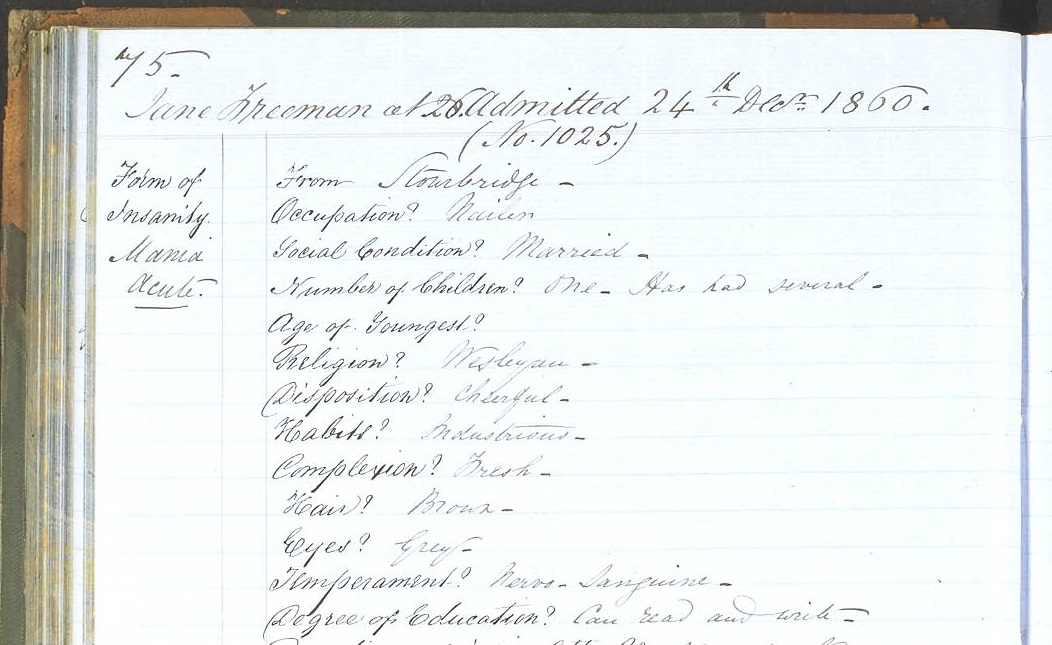 75.
Jane Freeman æt 26. Admitted 24th Decr. 1860.
(No. 1025.)
Form of
Insanity.
Mania
Acute.
From Stourbridge -
Occupation? Nailer
Social Condition? Married -
Number of Children? One - Has had several -
Age of Youngest?
Religion? Wesleyan -
Disposition? Cheerful -
Habits? Industrious -
Complexion? Fresh -
Hair? Brown -
Eyes? Grey -
Temperament? Nervo-Sanguine -
Degree of Education? Can read and write -